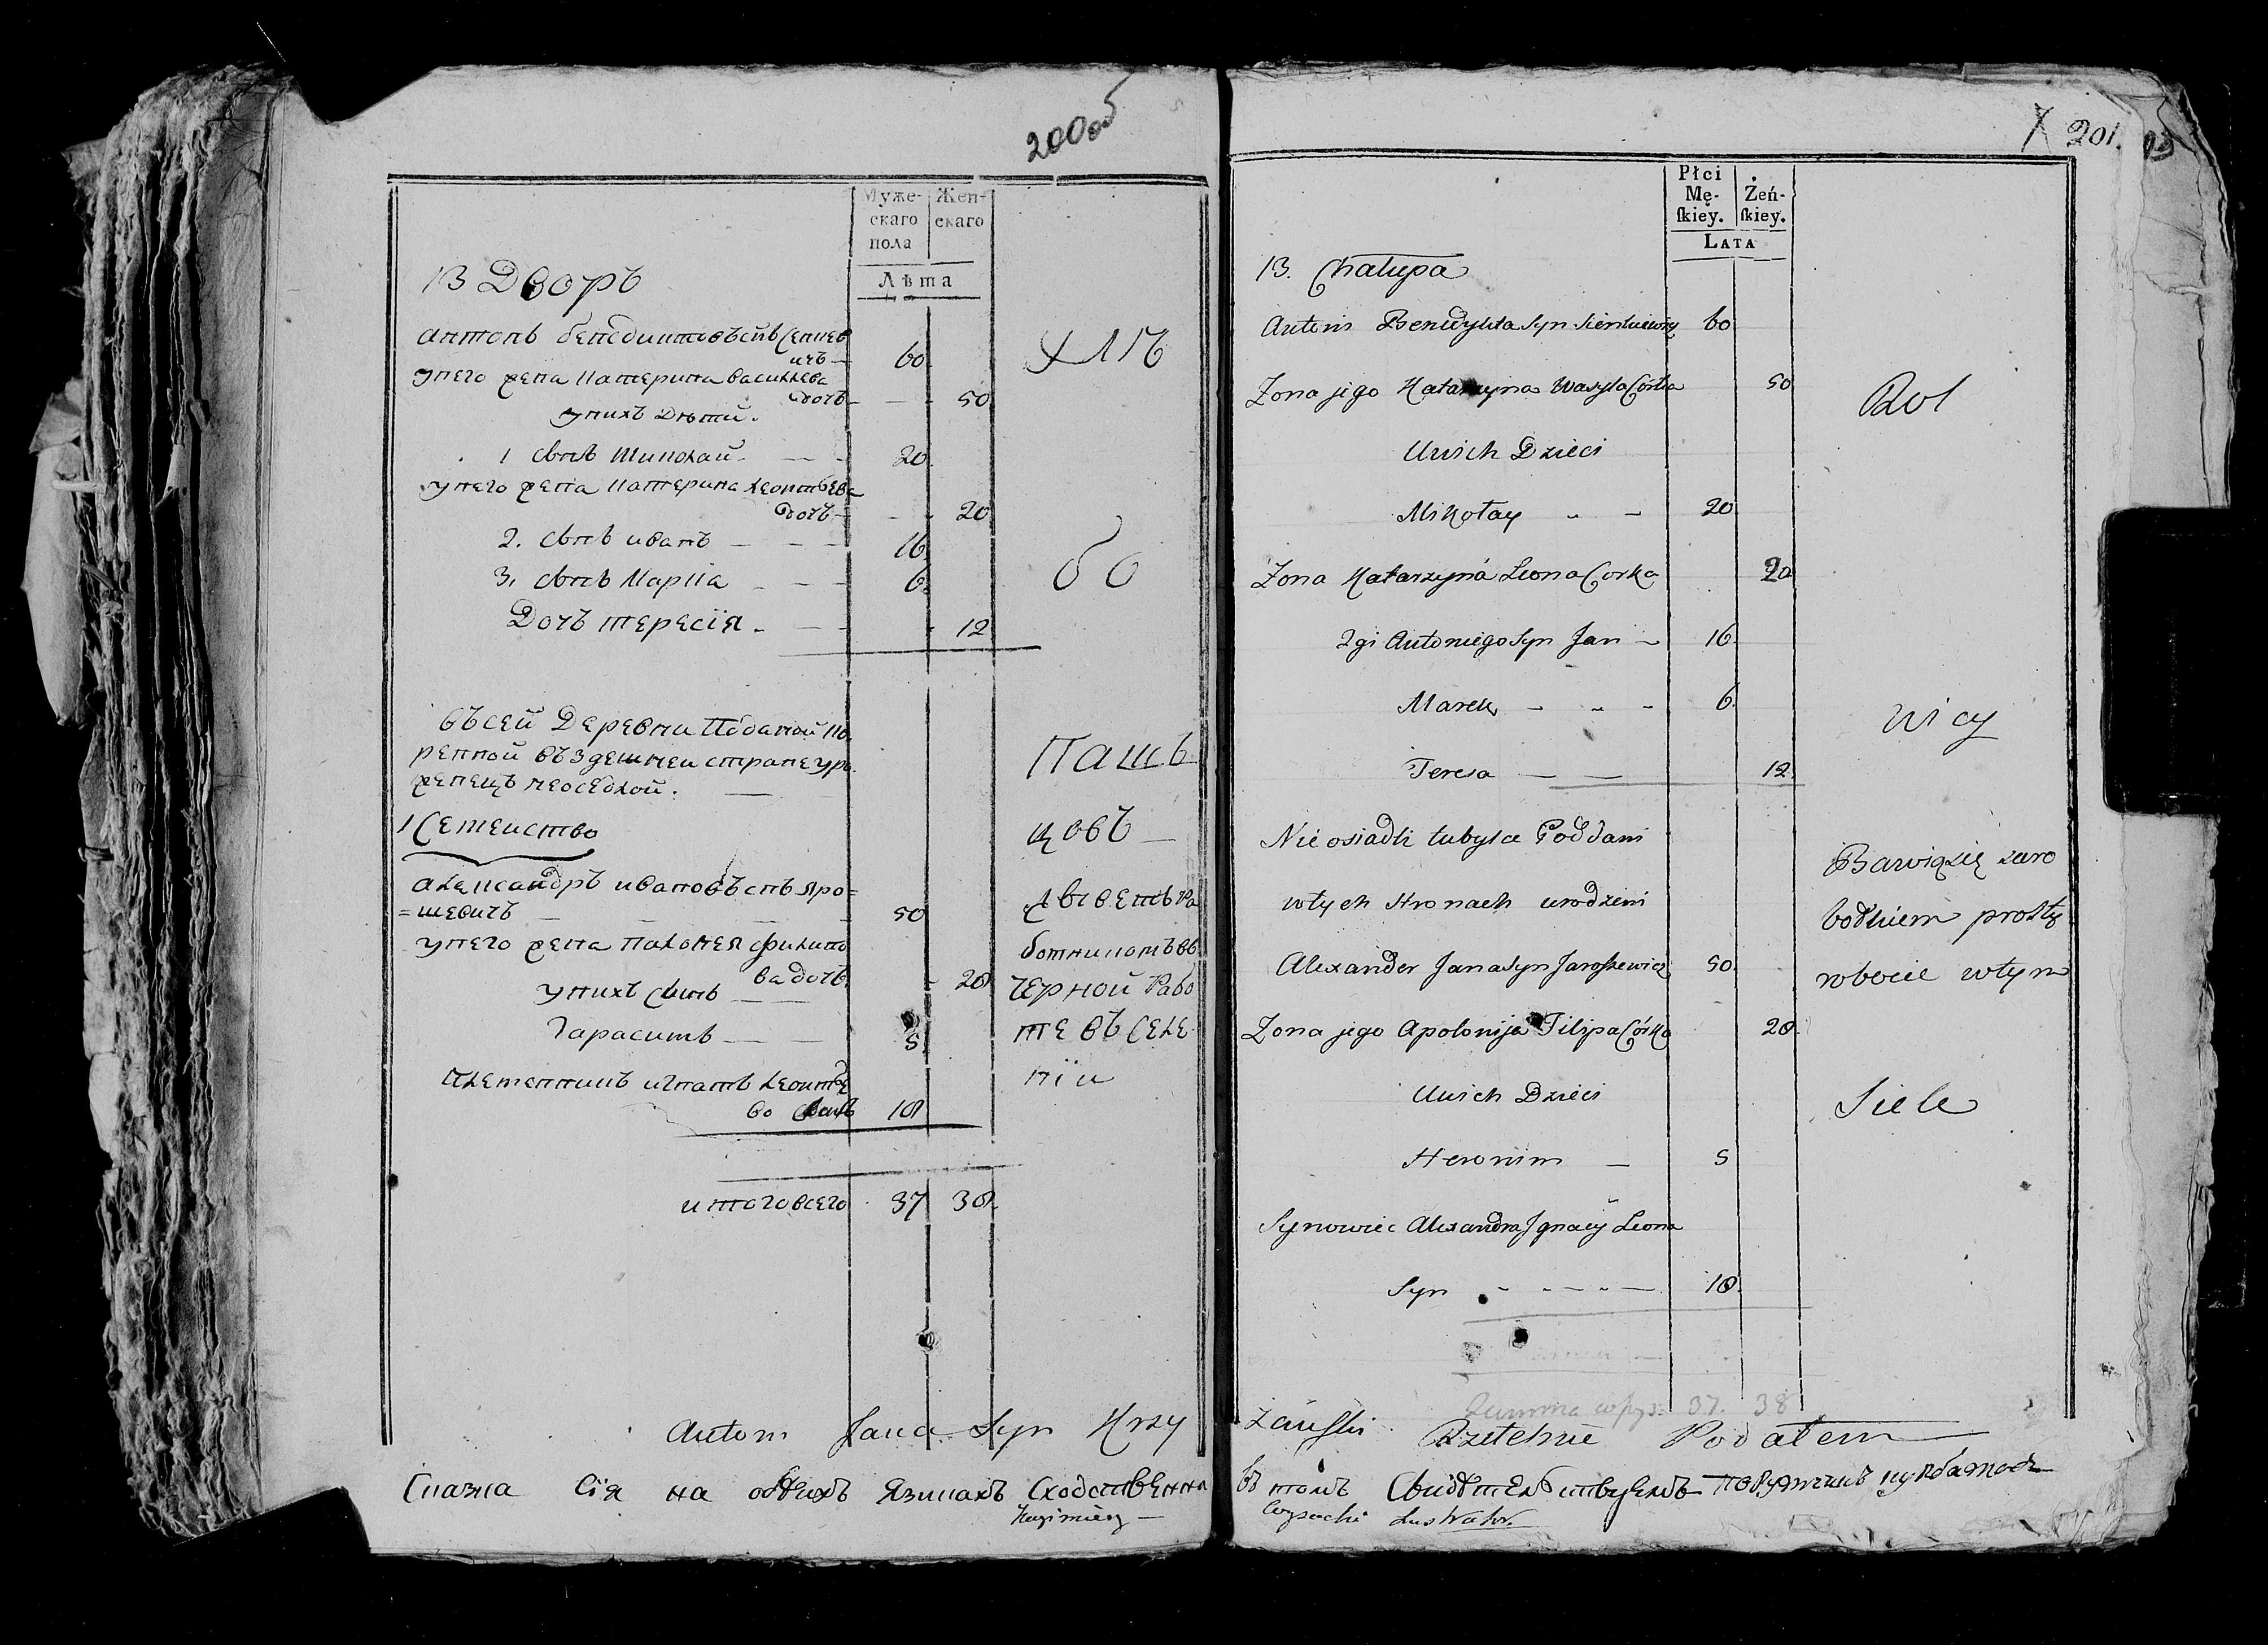 200 об
Муже-
скаго
пола
Жен-
скаго
Лѣта
13 Дворъ
антонъ бенедиктовъ снъ Сенкев
ичъ — 60
унего жена катерина василева
дочь — 50
унихъ дѣти.
1 сынъ миколай — 20
унего жена катерина леонтьева
дочь — 20
2. сынъ иванъ — 16
3. сынъ Марка — 6
Дочь тересія — 12
хлѣ
бо
пашъ
цовъ
въсей деревни Поданой ко
ренной въздешней стране уро
женецъ неоседлой.
1 Семейство
александръ ивановъ снъ яро=
=шевичъ — 50
унего жена палонея филипо
ва дочь — 28
унихъ сынъ
Гарасимъ — 5
племенникъ игнатъ леонтье
во сынъ 18
живетъ ра
ботникомъ въ
черной рабо
те въ селе
ніи
итого всего 37 38
Antoni Jana Syn Krzy
Сказка сія на обѣихъ языкахъ сходственна
Kazimierz
201.
Płci
Mę-
ſkiey.
Żeń-
ſkiey.
Lata
13. Chałupa
Antoni Benedykta Syn Sienkiewicz 60
Zona jego Katarzyna Wasyla Córka 50
Unich Dzieci
Mikołay 20
Zona Katarzyna Leona Corka 20
2gi Antoniego Syn Jan 16
Marek 6
Teresa 12
Rol
nicy
Nie osiadli tubylce Poddani
wtych stronach urodzeni
Alexander Jana Syn Jaroszewicz 50
Zona jego Apolonija Filipa Córka 28
Unich Dzieci
Heronim 5
Synowiec Alexandra Ignacy Leona
Syn 18
Bawią się zaro
bodkiem prostey
robocie wtym
Siele
Summa wpys. 37. 38
żański Rzetelnie Podałem
въ томъ свидѣтельствуемъ
Wysocki Lustrator.